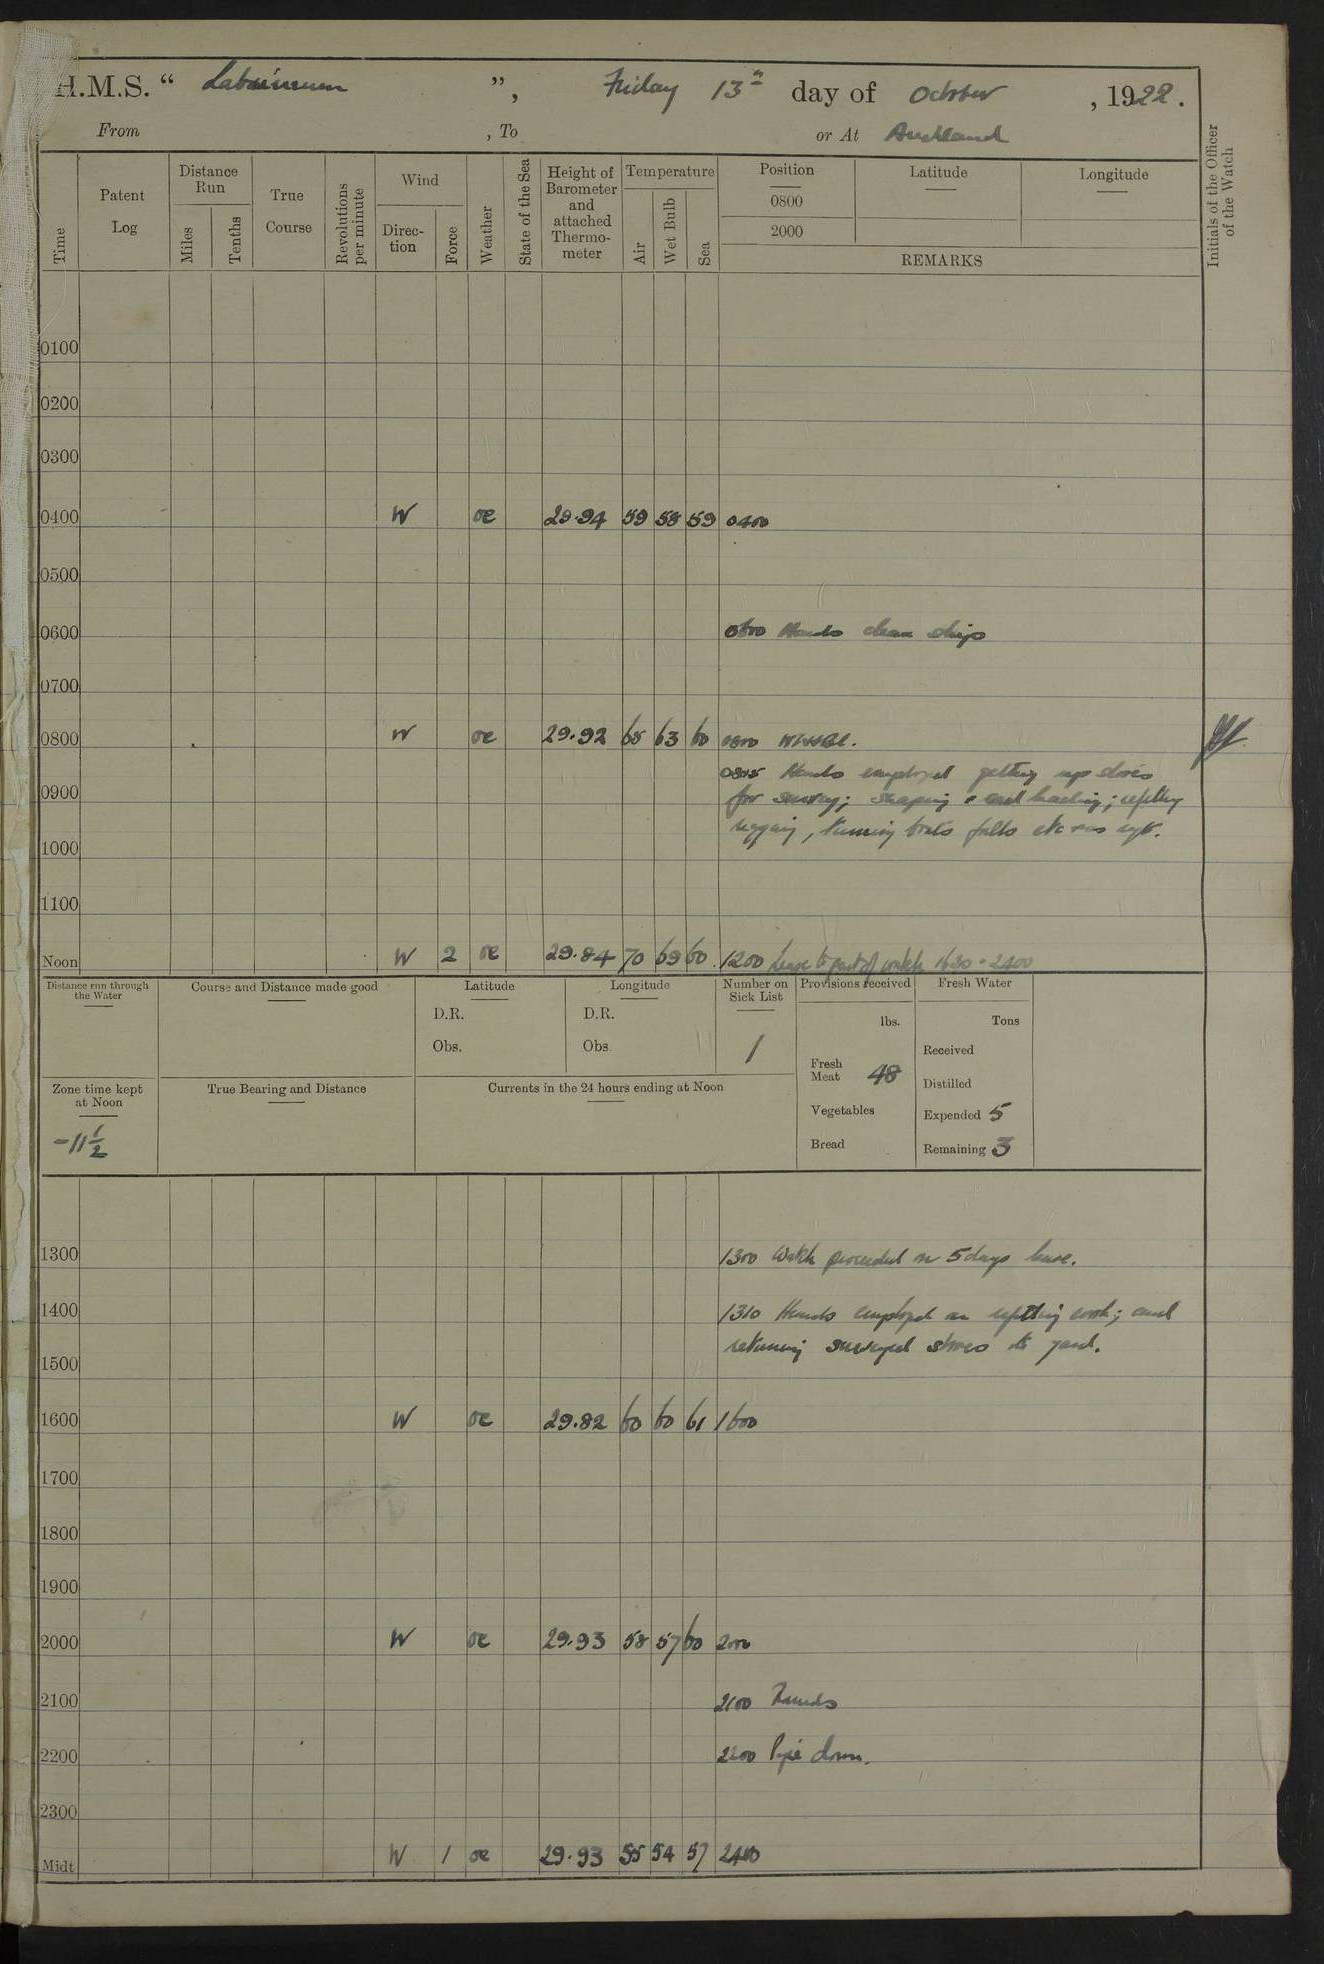 H.M.S. “ Laburnum ”, Friday 13th day of October , 1922.
From , To or At Auckland
Time
Patent Log
Distance Run
Miles
Tenths
True Course
Revolutions per minute
Wind
Direc-tion
Force
Weather
State of the Sea
Height of Barometer and attached Thermo-meter
Temperature
Air
Wet Bulb
Sea
Position
0800
2000
Latitude
Longitude
REMARKS
Initials of the Officer of the Watch
0100
0200
0300
0400 W oc 29.94 59 58 59 0400
0500
0600 0600 Hands clean ship
0700
0800 W oc 29.92 65 63 60 0800
0815 Hands employed getting up stores
0900 for survey; scraping & red leading; refitting
rigging, turning boats falls etc as req.
1000
1100
Noon W 2 oc 29.84 70 69 60 1200 Leave to part of watch 1630-2400
Distance run through the Water
Course and Distance made good
Latitude
D.R.
Obs.
Longitude
D.R.
Obs
Number on Sick List
1
Provisions received
lbs.
Fresh Meat 48
Vegetables
Bread
Fresh Water
Tons
Received
Distilled
Expended 5
Remaining 3
Zone time kept at Noon
-11 1/2
True Bearing and Distance
Currents in the 24 hours ending at Noon
1300 1300 Watch proceeded on 5 days leave.
1400 1310 Hands employed on refitting work; and
returning surveyed stores to yard.
1500
1600 W oc 29.82 60 60 61 1600
1700
1800
1900
2000 W oc 29.93 58 57 60 2000
2100 2100 Rounds
2200 2200 Pipe down.
2300
Midt W 1 oc 29.93 55 54 57 2400